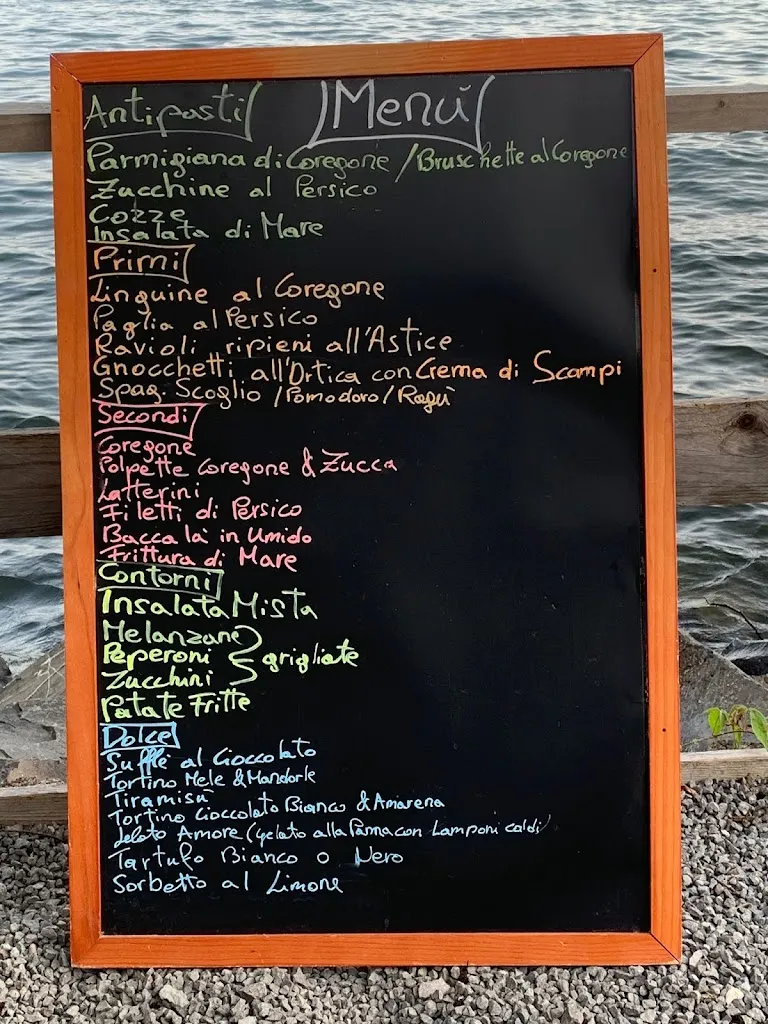 Menù
Antipasti
Parmigiana di Coregone / Bruschette al Coregone
Zucchine al Persico
Cozze
Insalata di Mare
Primi
Linguine al Coregone
Paglia al Persico
Ravioli ripieni all'Astice
Gnocchetti all'Ortica con Crema di Scampi
Spag. Scoglio / Pomodoro / Ragù
Secondi
Coregone
Polpette Coregone & Zucca
Latterini
Filetti di Persico
Baccalà in Umido
Frittura di Mare
Contorni
Insalata Mista
Melanzane
Peperoni } grigliate
Zucchini
Patate Fritte
Dolce
Sufflè al Cioccolato
Tortino Mele & Mandorle
Tiramisù
Tortino Cioccolato Bianco & Amarena
Gelato Amore (gelato alla Panna con Lamponi caldi)
Tartufo Bianco o Nero
Sorbetto al Limone